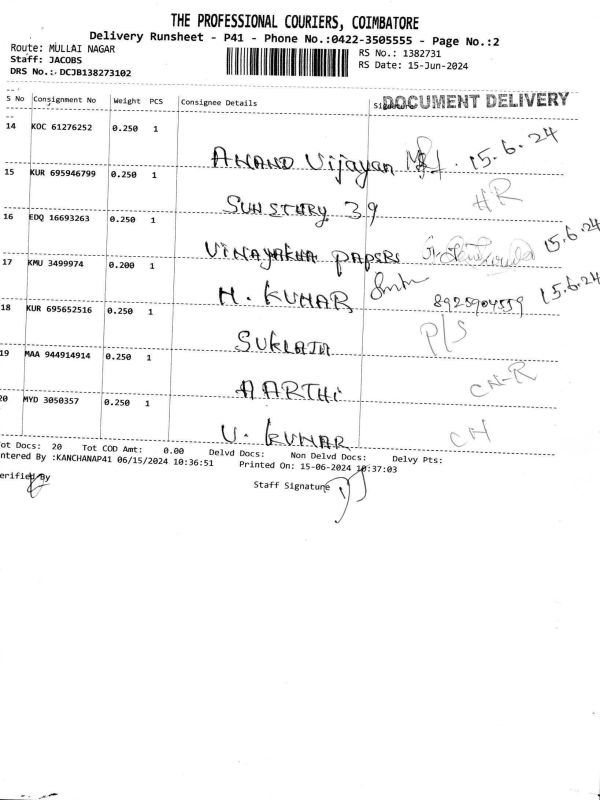 THE PROFESSIONAL COURIERS, COIMBATORE
Delivery Runsheet - P41 - Phone No.:0422-3505555 - Page No.:2
Route: MULLAI NAGAR
RS No.: 1382731
Staff: JACOBS
RS Date: 15-Jun-2024
DRS No.: DCJB138273102
S No Consignment No Weight PCS Consignee Details
DOCUMENT DELIVERY
14 KOC 61276252 0.250 1
ANAND Vijayan 15.6.24
15 KUR 695946799 0.250 1
HR
16 EDQ 16693263 0.250 1
VINAYAKHA PAPERS 15.6.24
17 KMU 3499974 0.200 1
H. KUMAR 8925904559 15.6.24
18 KUR 695652516 0.250 1
P/S
19 MAA 944914914 0.250 1
AARTHi CN-R
20 MYD 3050357 0.250 1
U. KUMAR CN
ot Docs: 20 Tot COD Amt: 0.00 Delvd Docs: Non Delvd Docs: Delvy Pts:
ntered By :KANCHANAP41 06/15/2024 10:36:51 Printed On: 15-06-2024 10:37:03
erified By
Staff Signature